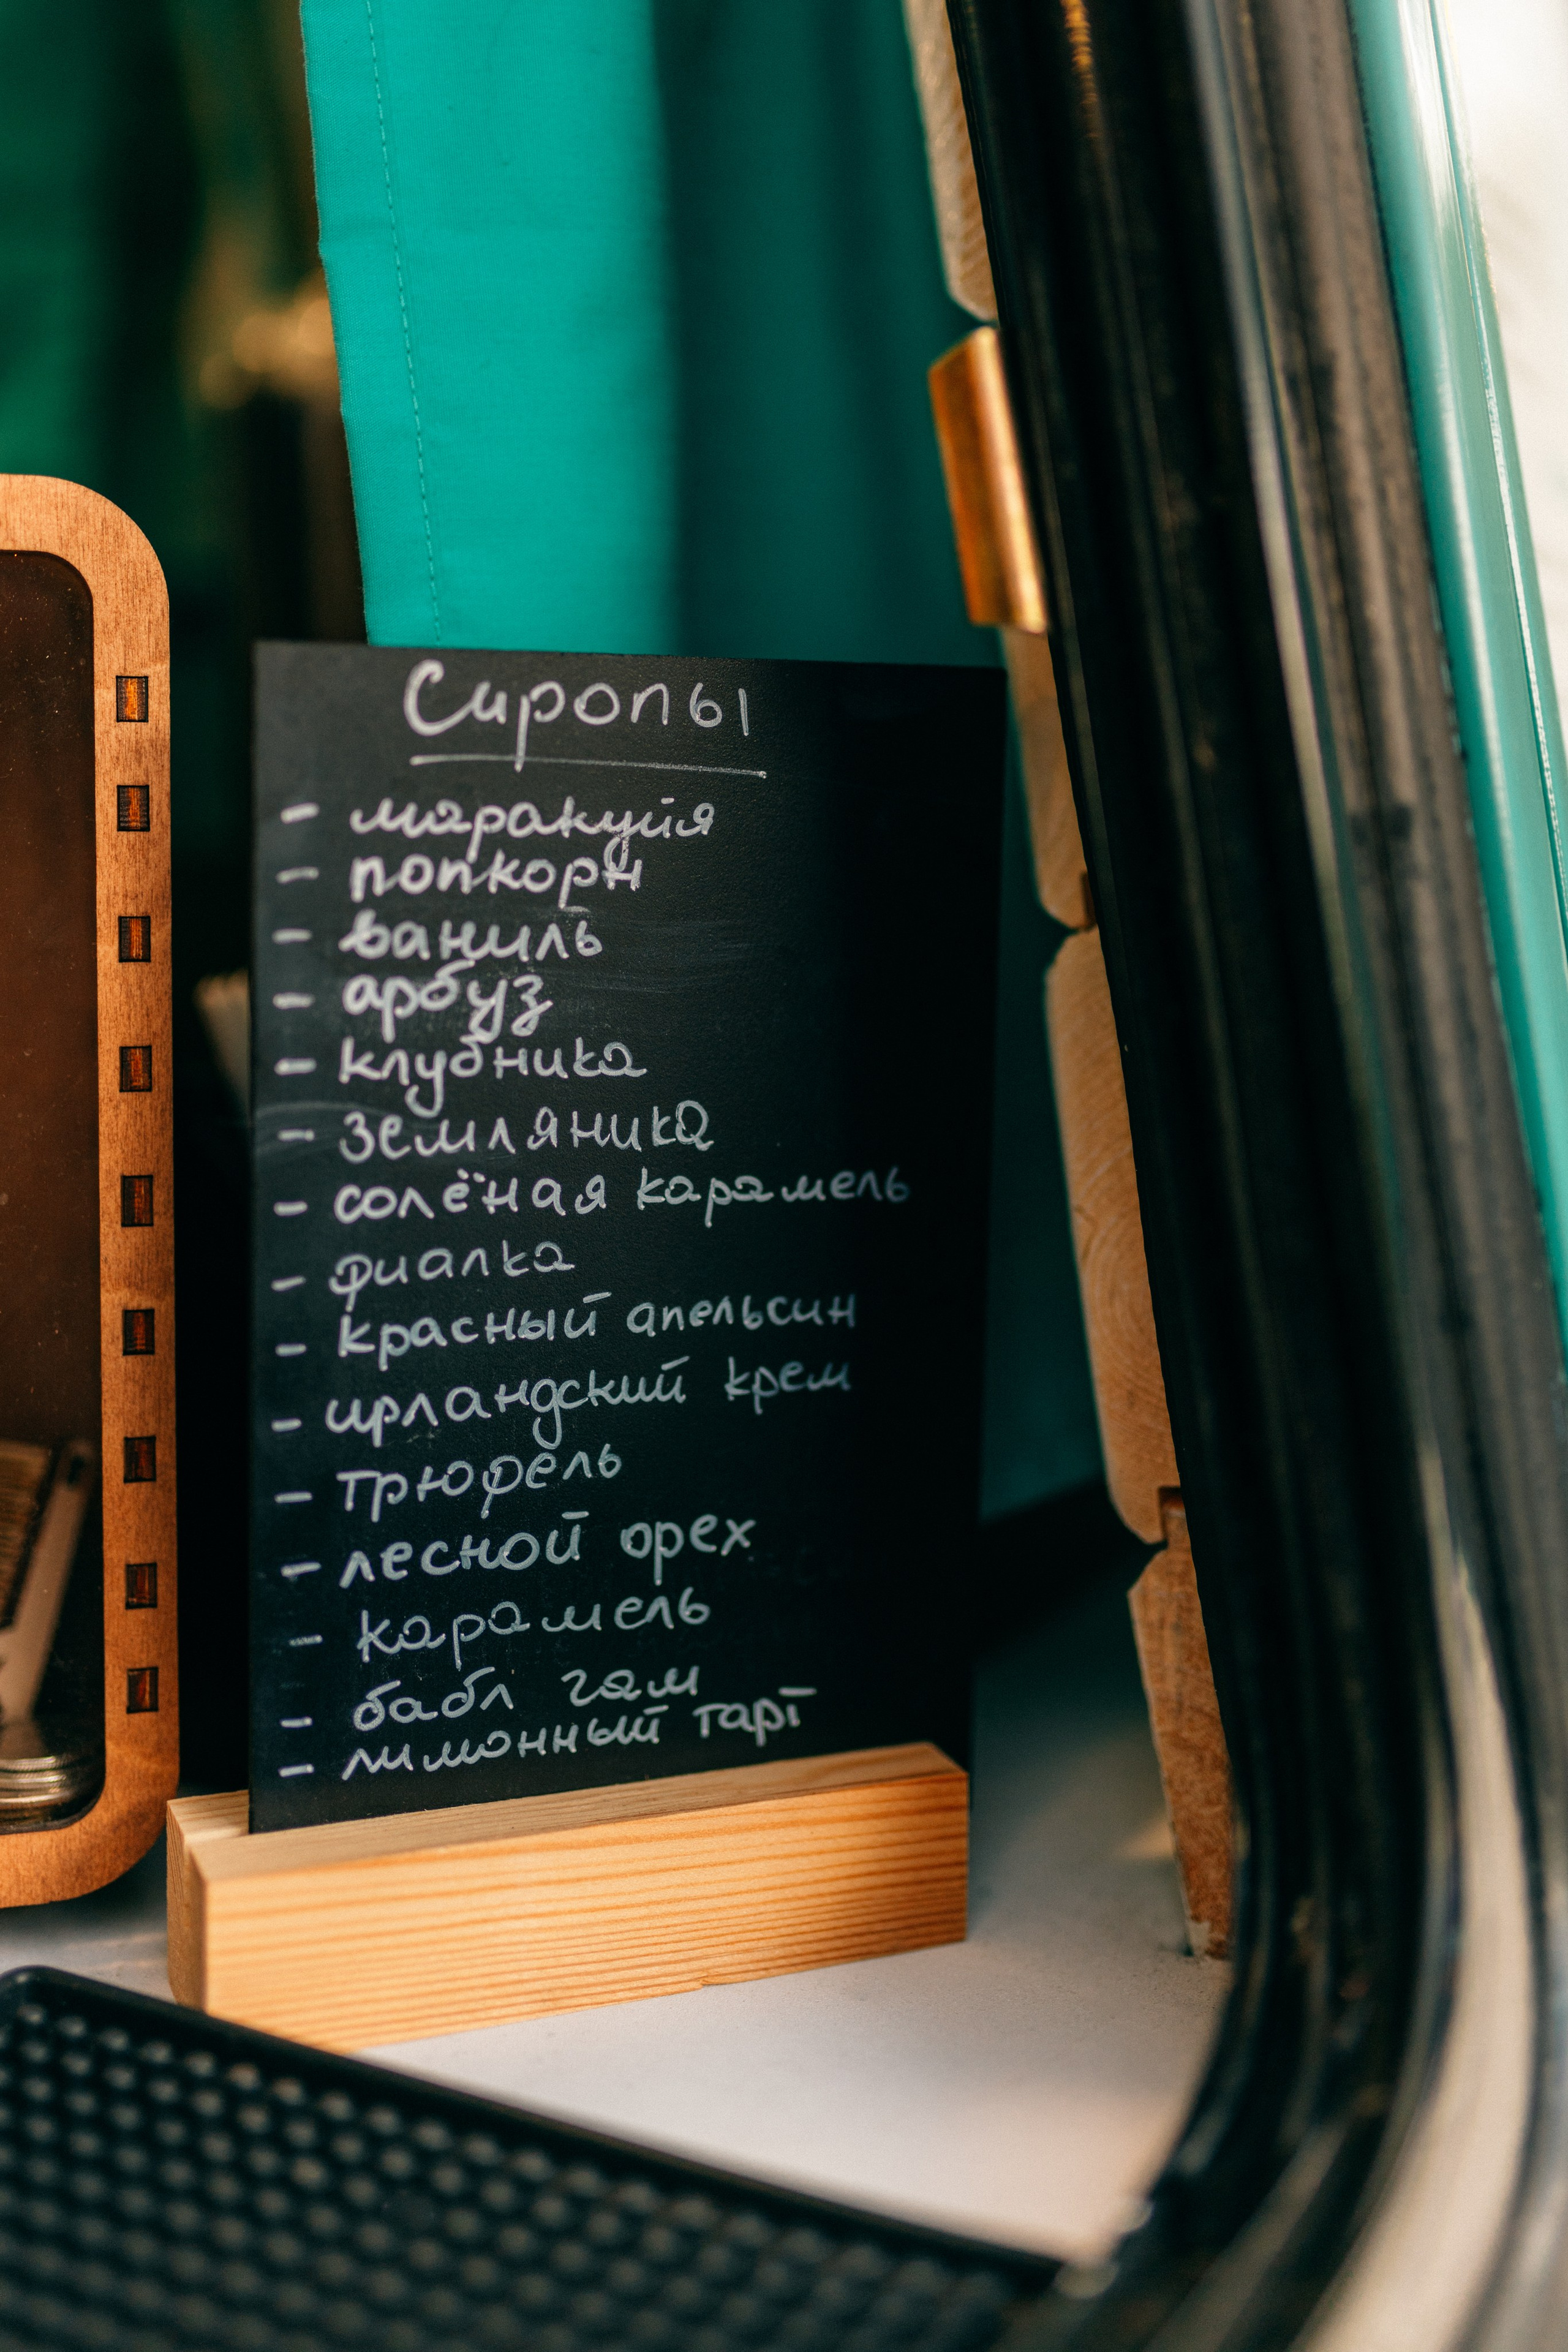 Сиропы
- маракуйя
- попкорн
- ваниль
- арбуз
- клубника
- земляника
- солёная карамель
- фиалка
- красный апельсин
- ирландский крем
- трюфель
- лесной орех
- карамель
- бабл гам
- лимонный тарт